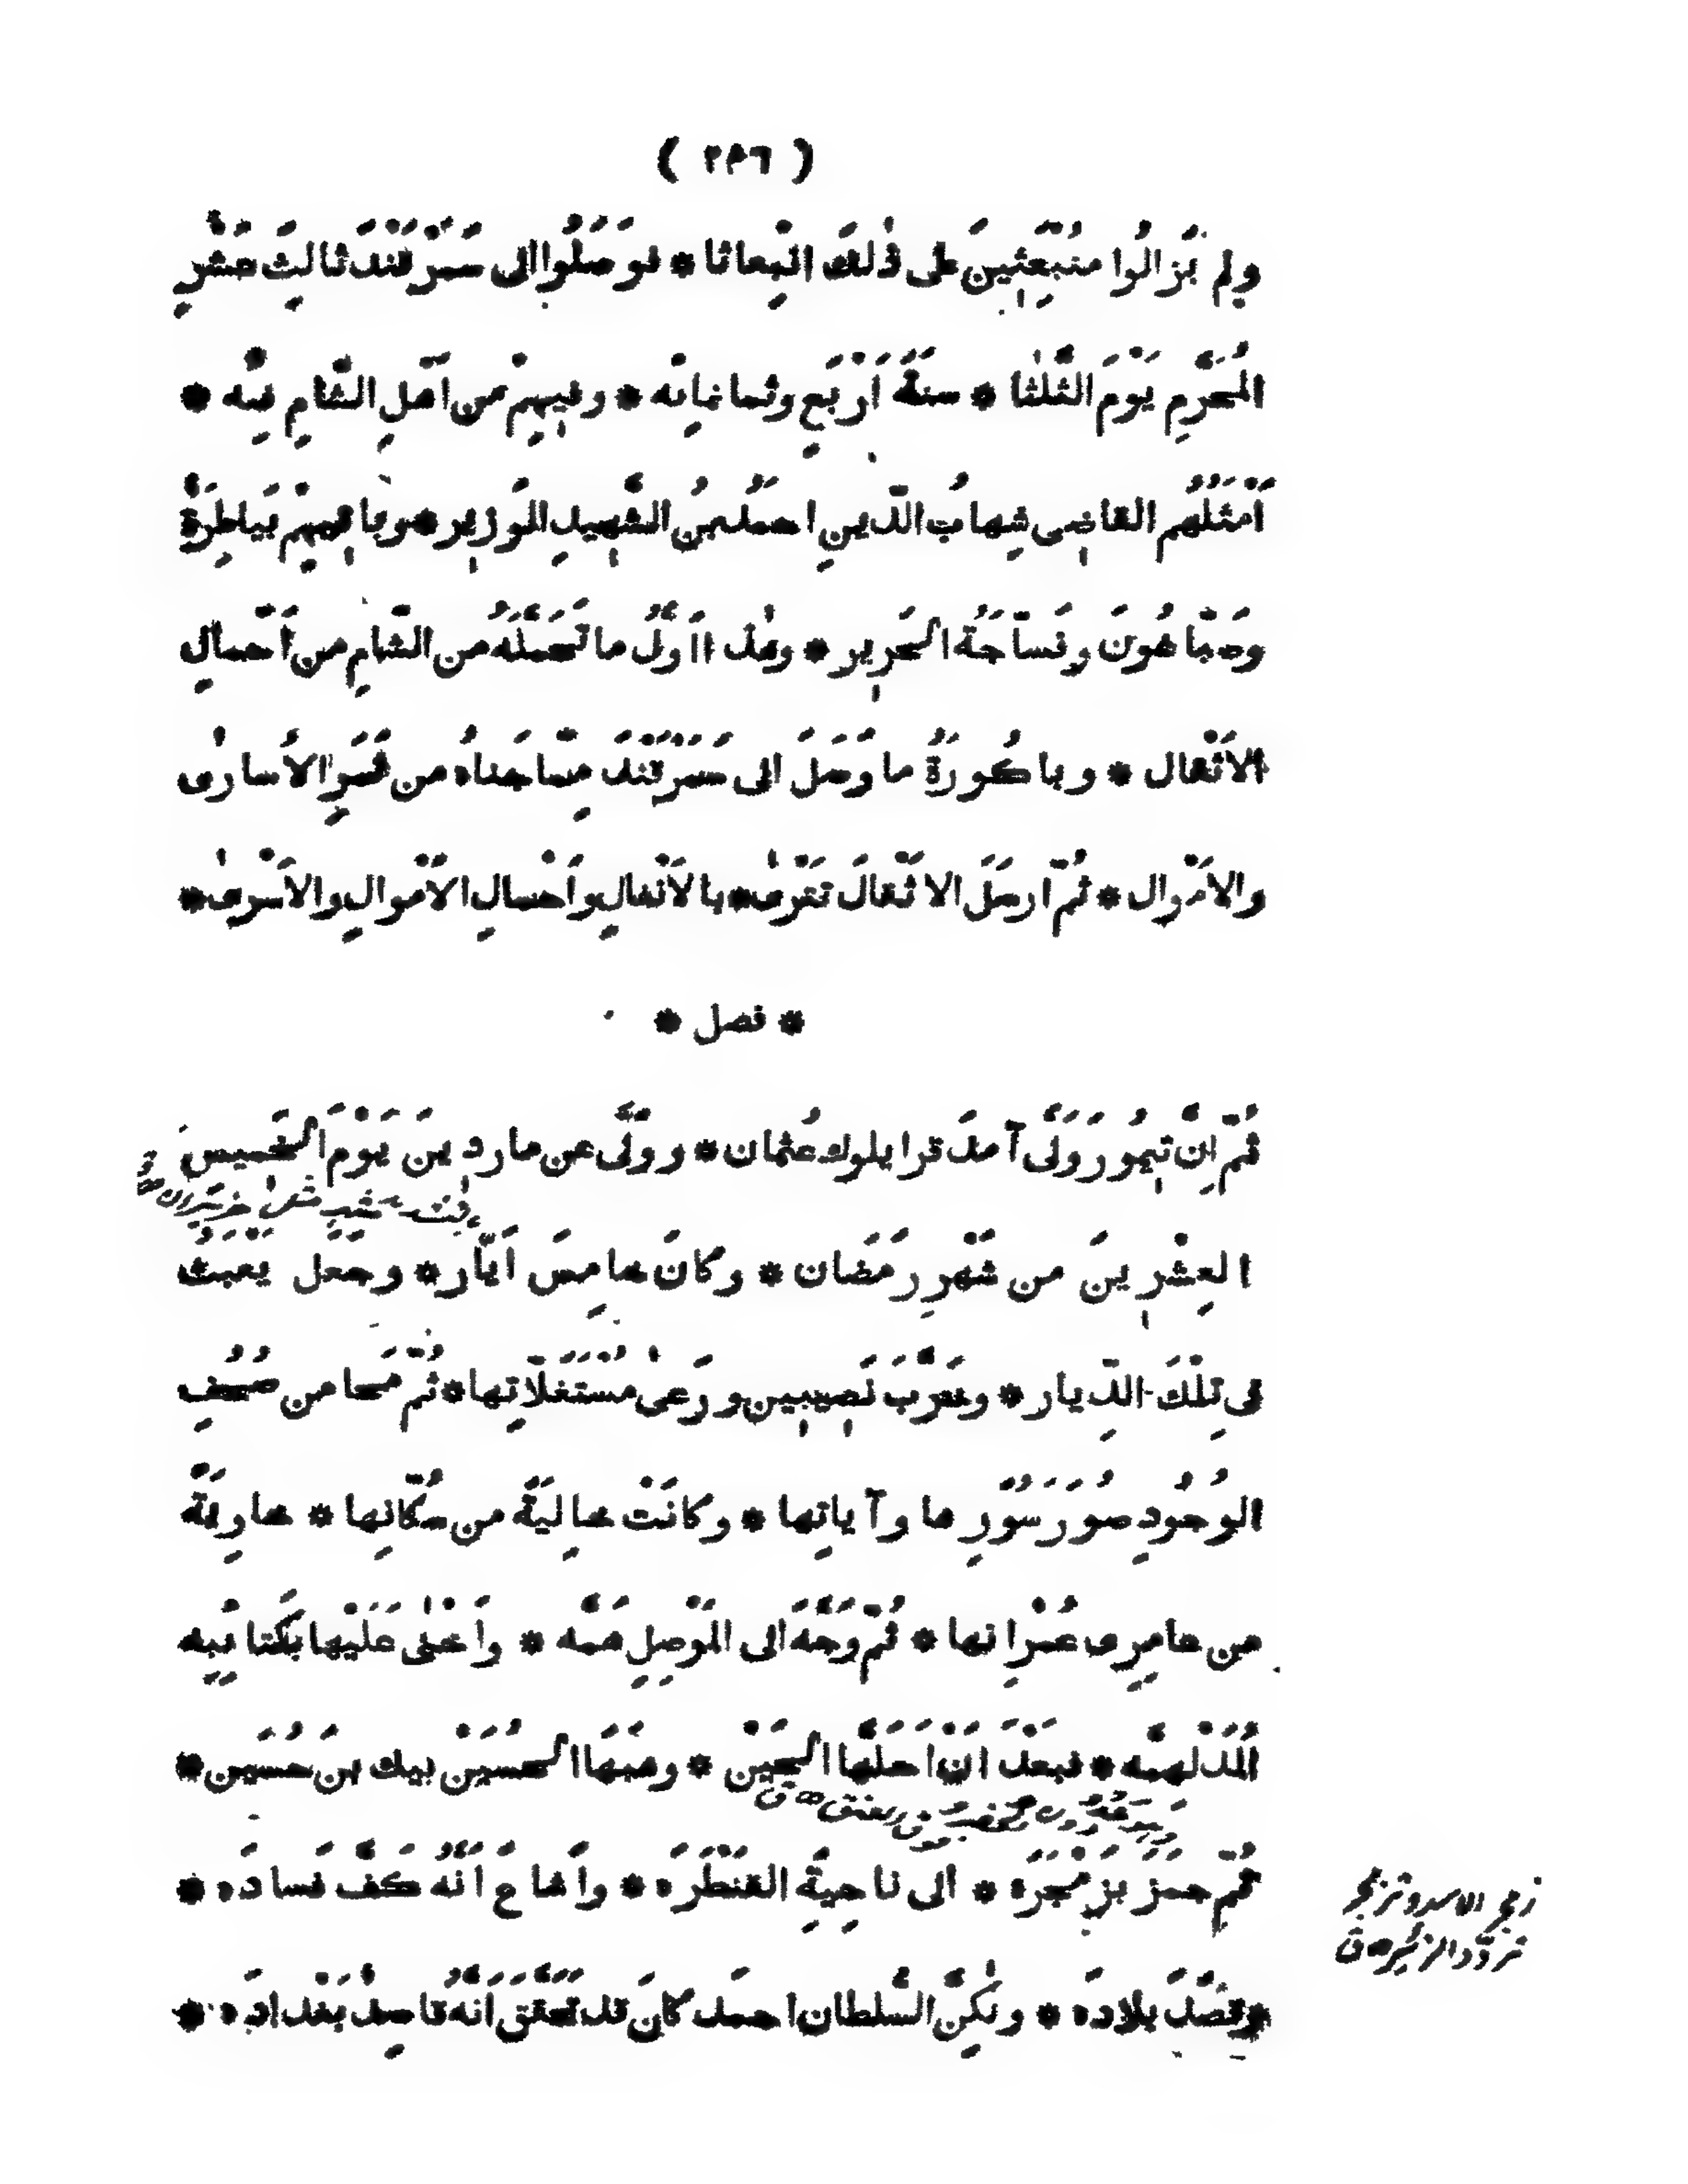 ( ٢٣٦ )
ولم يَزَالُوا مُنْبَعِثِينَ على ذٰلكَ انْبِعاثا * فوَصَلُوا الى سَمَرْقَنْدَ ثالثَ عَشْرِ
المُحَرَّمِ يَوْمَ الثَّلٰثا * سنةَ أَرْبَعٍ وثمانمائه * وفيهِمْ من اَهْلِ الشَّامِ فِئَه *
اَمْثَلُهُم القاضِى شِهابُ الدّينِ احمدُ بنُ الشَّهِيدِ الوَزِير * وباقِيهِمْ بَياطِرَةٌ
وصَبّاغُونَ ونَسّاجَةُ الحَرِير * وهذا اَوَّلُ ما تَحَمَّلَهُ من الشّامِ من اَحْمالِ
الاَثْقال * وباكُورَةُ ما وَصَلَ الى سَمَرْقَنْدَ مِمّا جَناهُ من ثَمَرِ الاُسارٰى
والاَمْوال * ثُمّ ارسَلَ الاثْقالَ تَتْرىٰ * بالاَنْفالِ واَحْمالِ الاَمْوالِ والاَسْرىٰ *
* فصل *
ثُمّ اِنَّ تِيمُورَ وَلَّى آمدَ قرايلوك عُثمان * ووَلَّى عن مارِدِينَ يَوْمَ الخَمِيسِ
العِشْرِينَ من شَهْرِ رمَضَان * وكانَ خامِسَ اَيّار * وجَعَلَ يَعْبَثُ
فى تِلْكَ الدِّيار * وخَرَّبَ نَصِيبِين ورَعىٰ مُسْتَغَلّاتِها * ثُمّ مَحا من صُحُفِ
الوُجُودِ صُوَرَ سُوَرِها وآياتِها * وكانَتْ خالِيَةً من سُكّانِها * عارِيَةً
من عامِرِى عُمْرانها * ثُمّ وجَّهَ الى المَوْصِلِ هِمَّه * واَخْنٰى عَلَيْها بكَتائِبِه
المُدْلَهِمَّه * فبعْدَ اَنْ اَحَلَّها الحَيْن * وهَبَها الحُسَيْن بيك بنَ حُسَين *
ثُمّ جمَزَ بزَمْجَرَه * الى ناحِيَةِ القَنْطَرَه * واَشاعَ اَنّهُ كَفَّ فَسادَه *
وقَصَدَ بِلادَه * ولكِنَّ السُّلطان احمَد كانَ قد تَحَقّقَ اَنّهُ قاصِدٌ بَغْدادَه *
زمجر الاسد وتزمجر